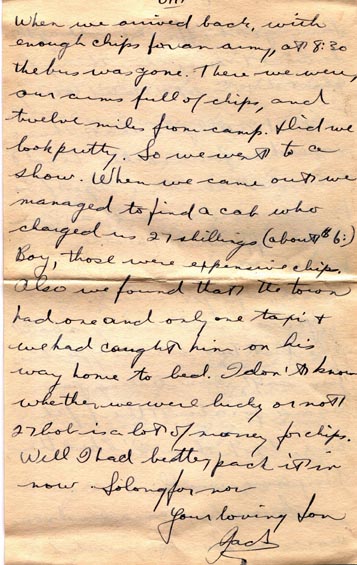 When we arrived back, with
enough chips for an army, at 8:30
the bus was gone. There we were
our arms full of chips, and
twelve miles from camp. & did we
look pretty. So we went to a
show. When we came out we
managed to find a cab who
charged us 27 shillings (about $6:)
Boy, those were expensive chips.
Also we found that the town
had one and only one taxi &
we had caught him on his
way home to bed. I don't know
whether we were lucky or not
27 bob is a lot of money for chips.
Well I had better pack it in
now So long for now
Your loving Son
Jack